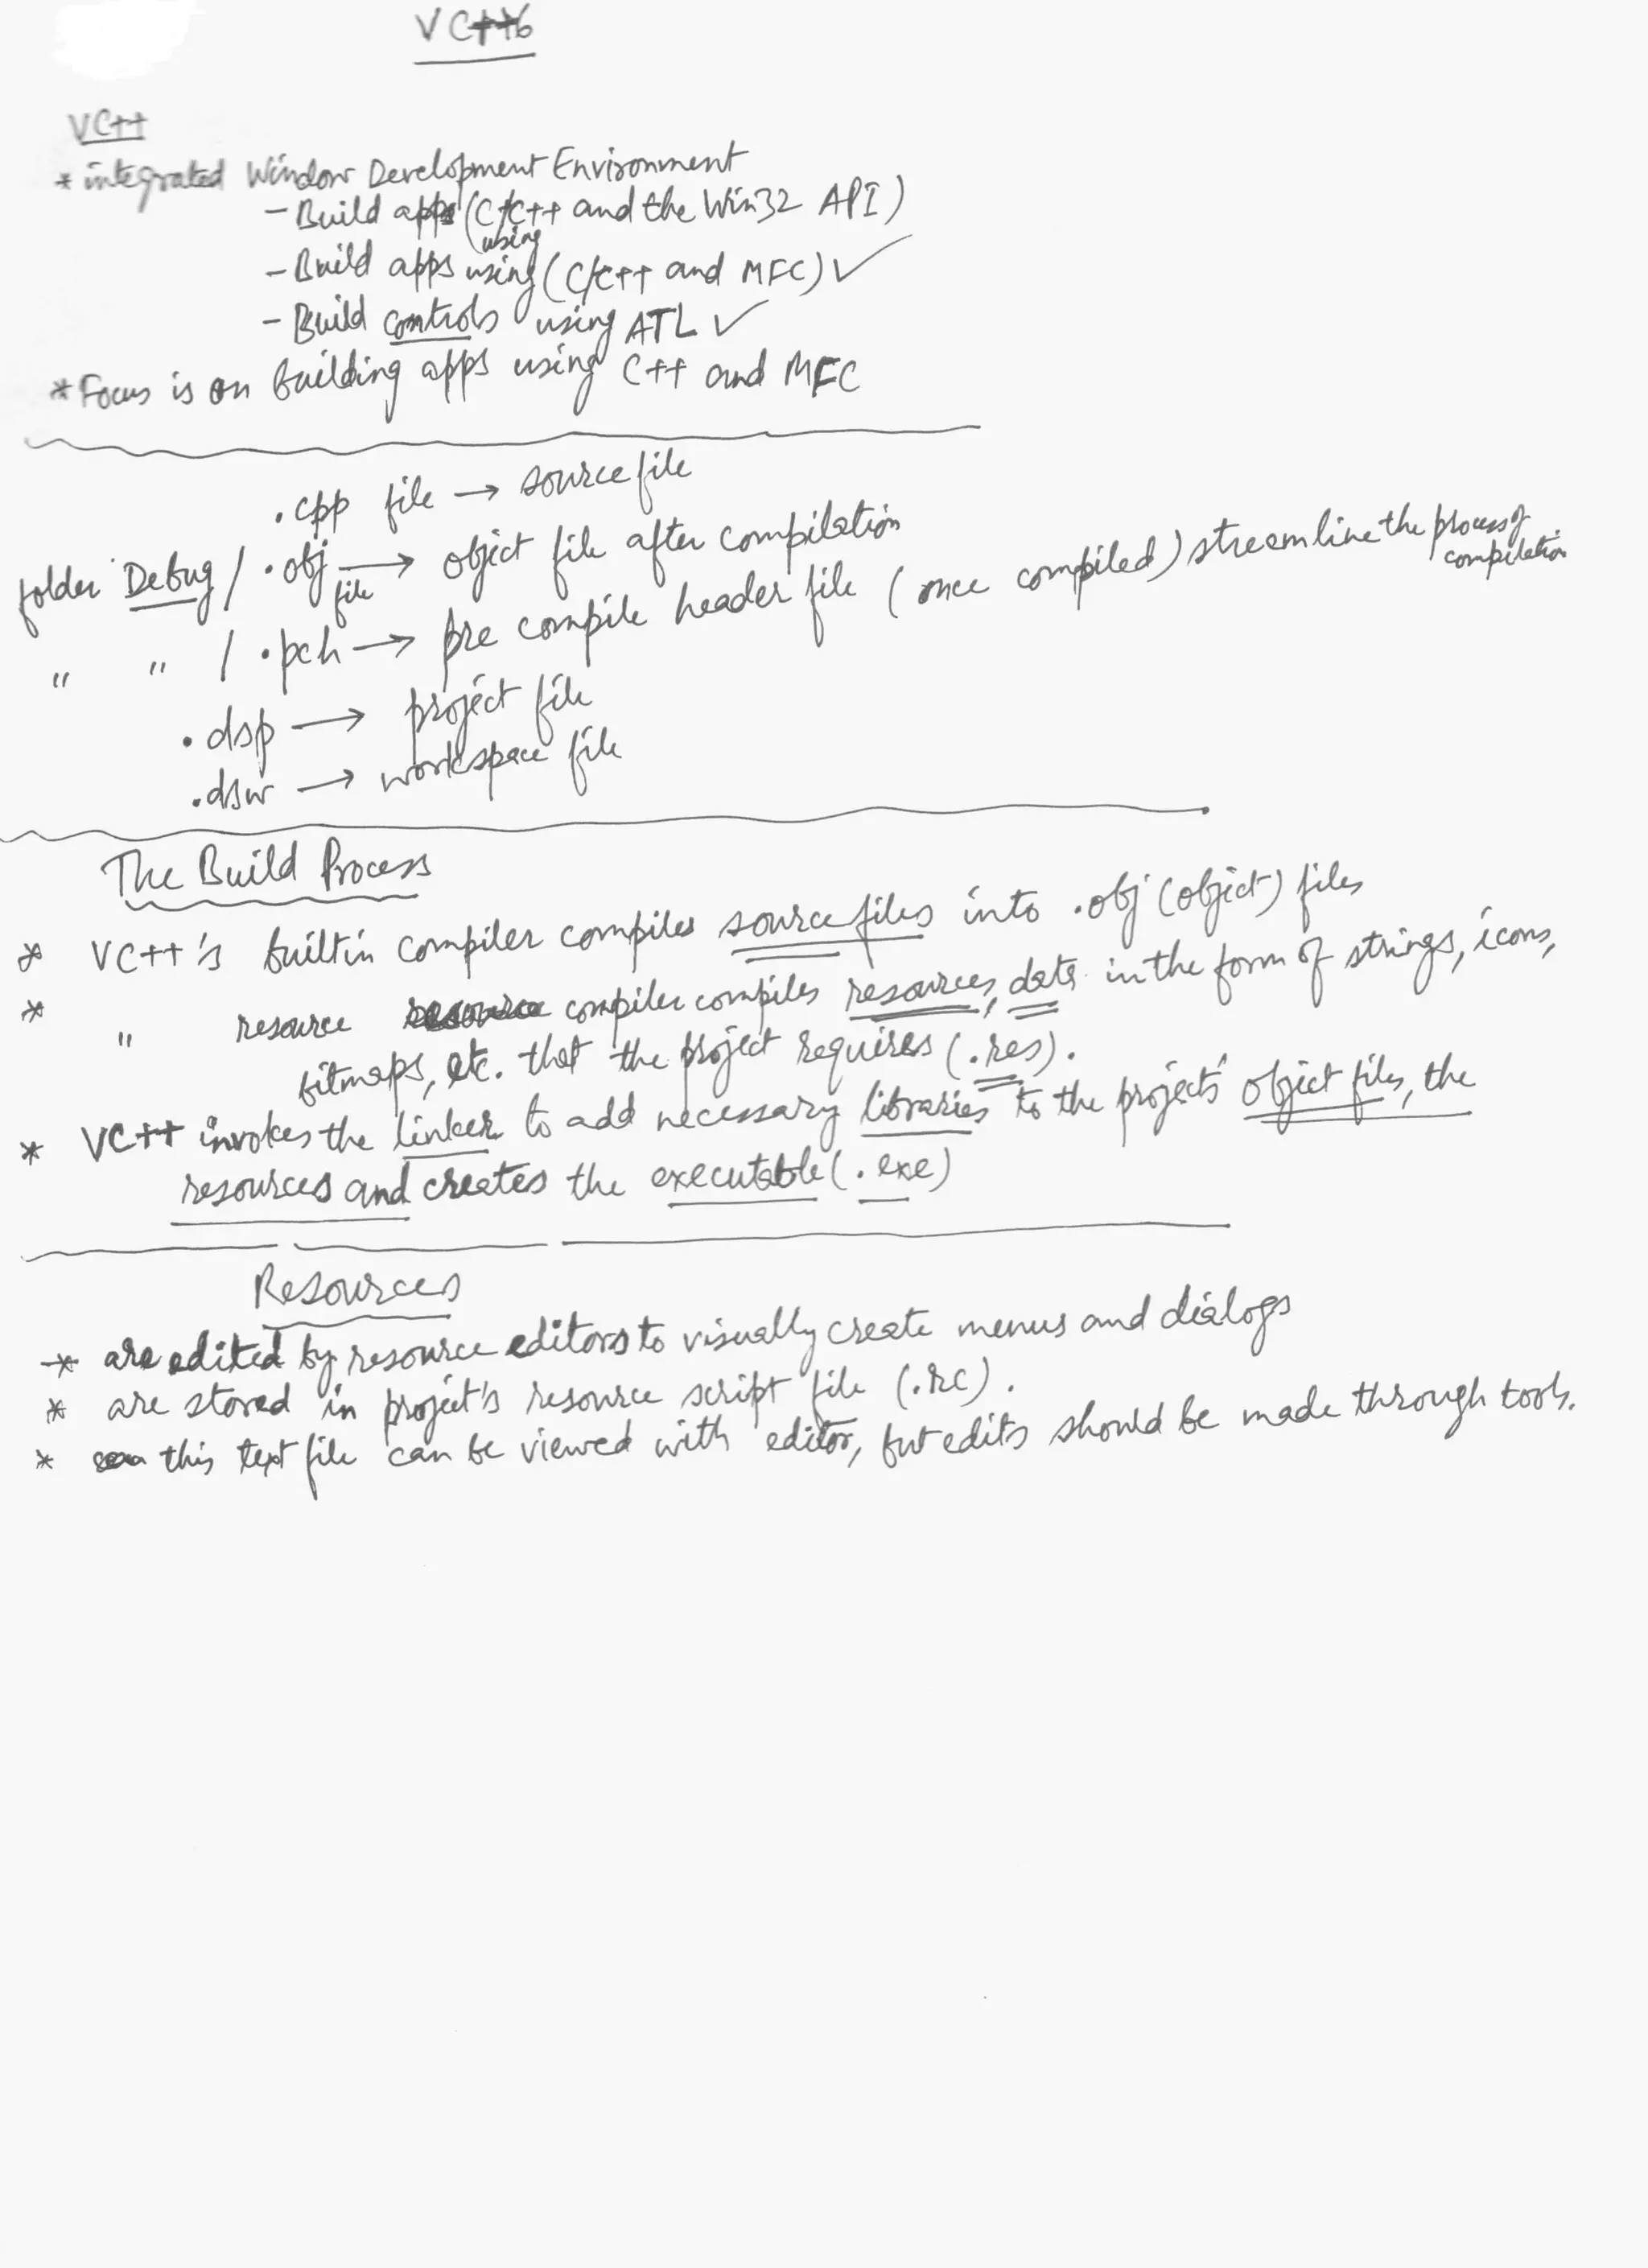 VC++6
VC++
* integrated Window Development Environment
- Build apps using (C/C++ and the Win32 API)
- Build apps using (C/C++ and MFC) ✓
- Build controls using ATL ✓
* Focus is on building apps using C++ and MFC
.cpp file → source file
folder Debug / .obj file → object file after compilation
" " / .pch → pre compile header file (once compiled) streamline the process of compilation
.dsp → project file
.dsw → workspace file
The Build Process
* VC++'s builtin compiler compiles source files into .obj (object) files
* " resource compiler compiles resources, data in the form of strings, icons,
bitmaps, etc. that the project requires (.res).
* VC++ invokes the linker to add necessary libraries to the projects' object files, the
resources and creates the executable (.exe)
Resources
* are edited by resource editors to visually create menus and dialogs
* are stored in project's resource script file (.rc).
* this text file can be viewed with editor, but edits should be made through tools.